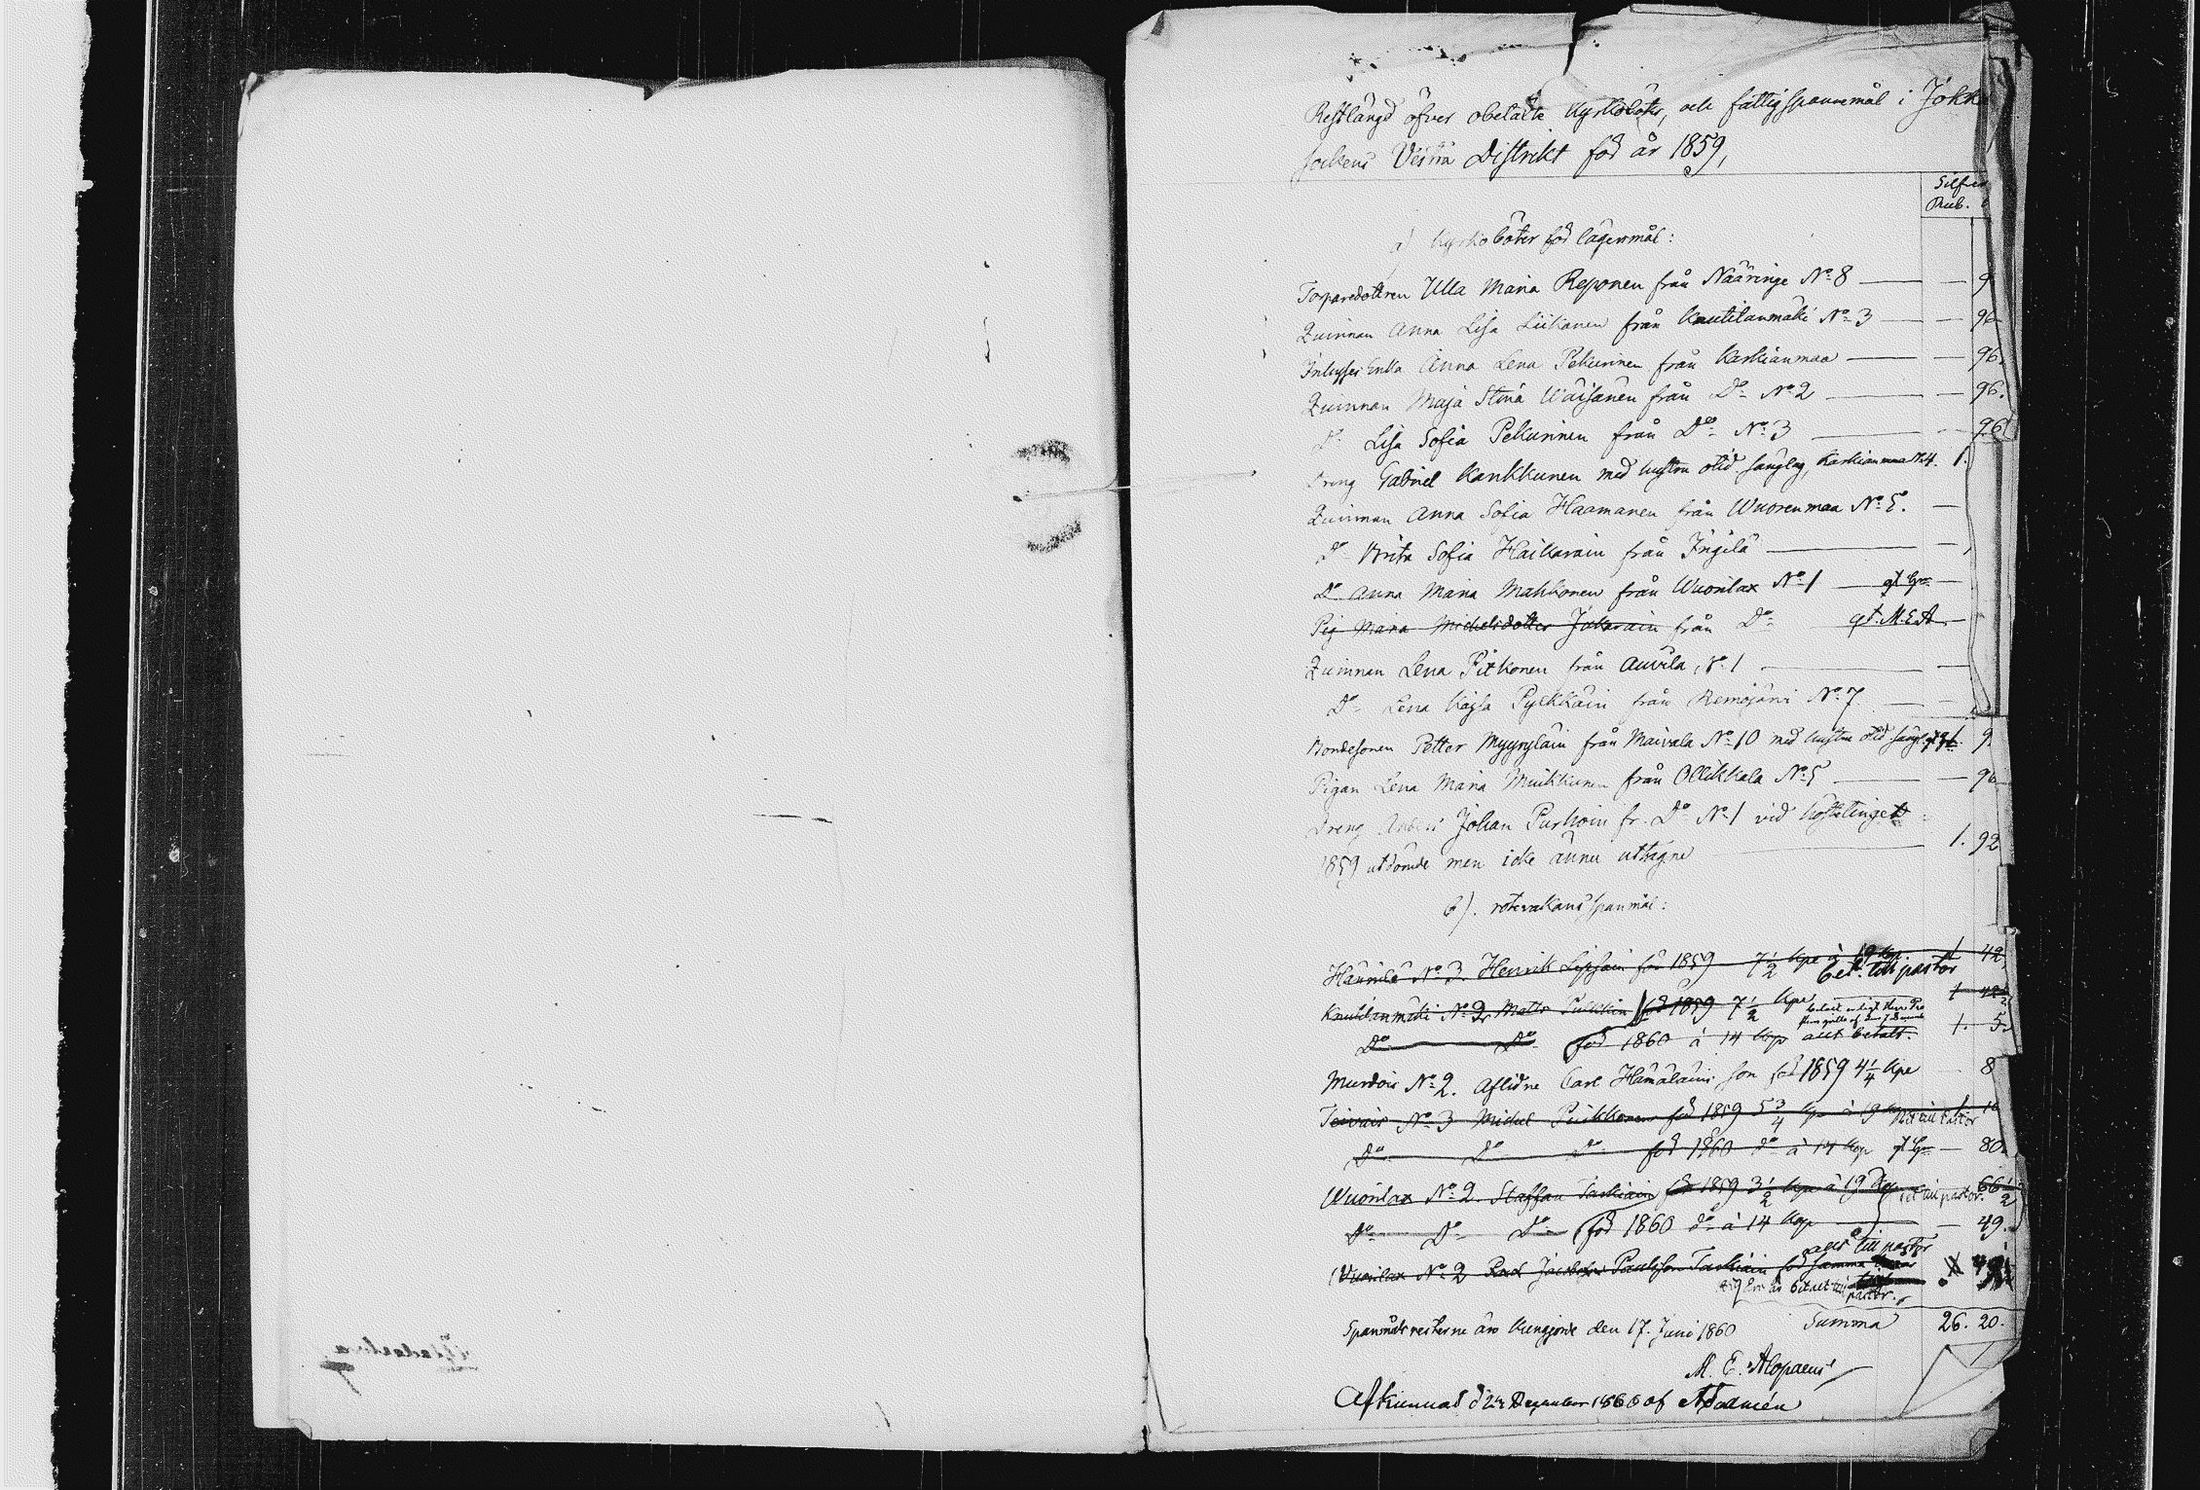 Restlängd öfver obetalte Kyrkoböter, och fattigspannmål i Jokk
sockens Vestra Distrikt för år 1859,
Silfver
Rub.
a) Kyrkoböter för lägersmål:
Torparedottren Ulla Maria Reponen från Nääringe No 8 — — 9
Quinnan Anna Lisa Liikanen från Knutilanmäki No 3 — — 96
Inhyses Enka Anna Lena Pekurinen från Karkianmaa — — 96.
Quinnan Maja Stina Wäisänen från Do No 2 — — 96.
Do Lisa Sofia Pekurinen från Do No 3 — — 96
Dreng Gabriel Kankkunen med hustru otid. sänglag, Karkianmaa N 4. 1.
Quinnan Anna Sofia Haamanen från Wuorenmaa No 5. —
Do Brita Sofia Haikarain från Ingilä — —
Do Anna Maria Makkonen från Wuorilax No 1 — —
Pig Maria Michelsdotter Jakarain från Do qt. M.E.A. —
Quinnan Lena Pitkonen från Auvila, N. 1 — —
Do Lena Kajsa Pylkkäin från Remojärvi No 7 — —
Bondesonen Petter Myyryläin från Maivala No 10 med hustru otid. sängl. 9
Pigan Lena Maria Muikkunen från Ollikkala No 5 — — 96
Dreng Anders Johan Purhoin fr. Do No 1 vid hösttinget
1859 utdömde men icke ännu uttagne — 1. 92
b). rotevakans spanmål:
Häurilä No 3. Henrik för 1859 7½ kpr à 19 kop 1 42
bet. till pastor
Knutilanmäki No 2, Matts för 1859 7½ kpr 1 42½
Do Do för 1860 à 14 kop allt betalt. 1. 5.
Murdois No 2. Aflidne Carl Hämäläins son för 1859 4¼ kpr — 8
Teivais No 3 Michel för 1859 5¾ kpr à 19 kop bet till Pastor 1
Do Do Do för 1860 do à 14 kop — 80.
Wuorilax No 2. Staffan Taskiain för 1859 3½ kpr à 19 kop bet till pastor. 66½
Do Do Do för 1860 do à 14 kop — 49.
till pastor
Wuorilax No 2 Paulsson Taskiain för samma
betalt till
pastor.
Summa 26. 20.
Spanmåls resterne äro kungjorde den 17. Juni 1860
M. E. Alopaeus
Afkunnad d 2 December 1860 af